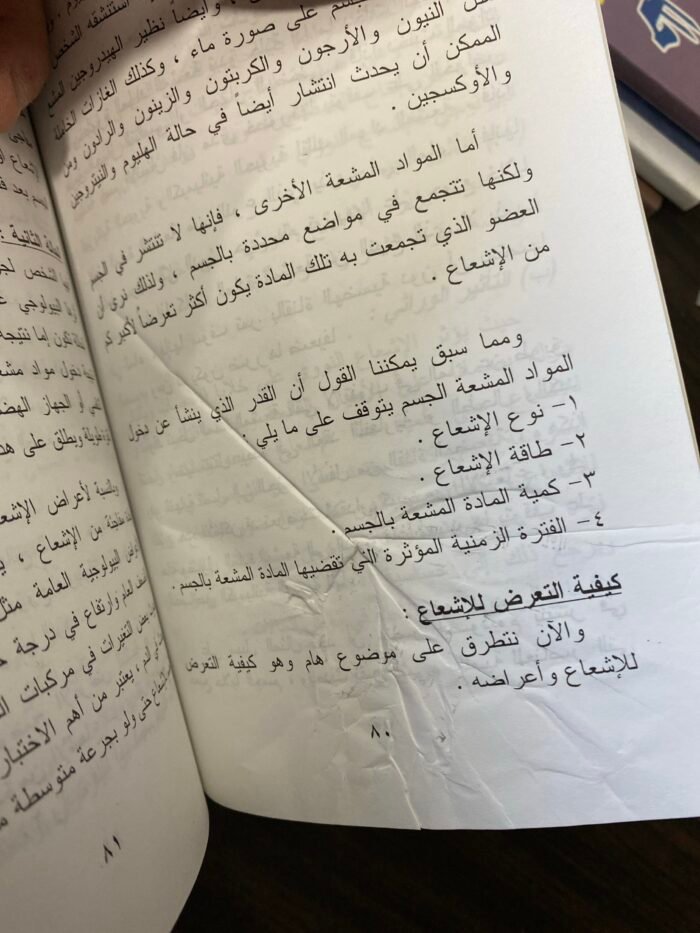 ، وأيضاً نظير الهيدروجين
الجسم على صورة ماء ، وكذلك الغازات الخاملة
مثل النيون والأرجون والكربتون والزينون والرادون ومن
الممكن أن يحدث انتشار أيضاً في حالة الهليوم والنيتروجين
والأوكسجين .
أما المواد المشعة الأخرى ، فإنها لا تنتشر في الجسم
ولكنها تتجمع في مواضع محددة بالجسم ، ولذلك نرى أن
العضو الذي تجمعت به تلك المادة يكون أكثر تعرضاً لأكبر كم
من الإشعاع .
ومما سبق يمكننا القول أن القدر الذي ينشأ عن دخول
المواد المشعة الجسم يتوقف على ما يلي :
١- نوع الإشعاع .
٢- طاقة الإشعاع .
٣- كمية المادة المشعة بالجسم .
٤- الفترة الزمنية المؤثرة التي تقضيها المادة المشعة بالجسم .
كيفية التعرض للإشعاع :
والآن نتطرق على موضوع هام وهو كيفية التعرض
للإشعاع وأعراضه .
٨٠
الثانية :
الشخص
البيولوجي
تكون إما نتيجة
دخول مواد مشعة
أو الجهاز
طويلة ويطلق على
وبالنسبة لأعراض الإشعاع
من الإشعاع ،
البيولوجية العامة مثل
العام وارتفاع في درجة
بعض التغيرات في مركبات
في الدم ، يعتبر من أهم
حتى ولو بجرعة متوسطة
٨١